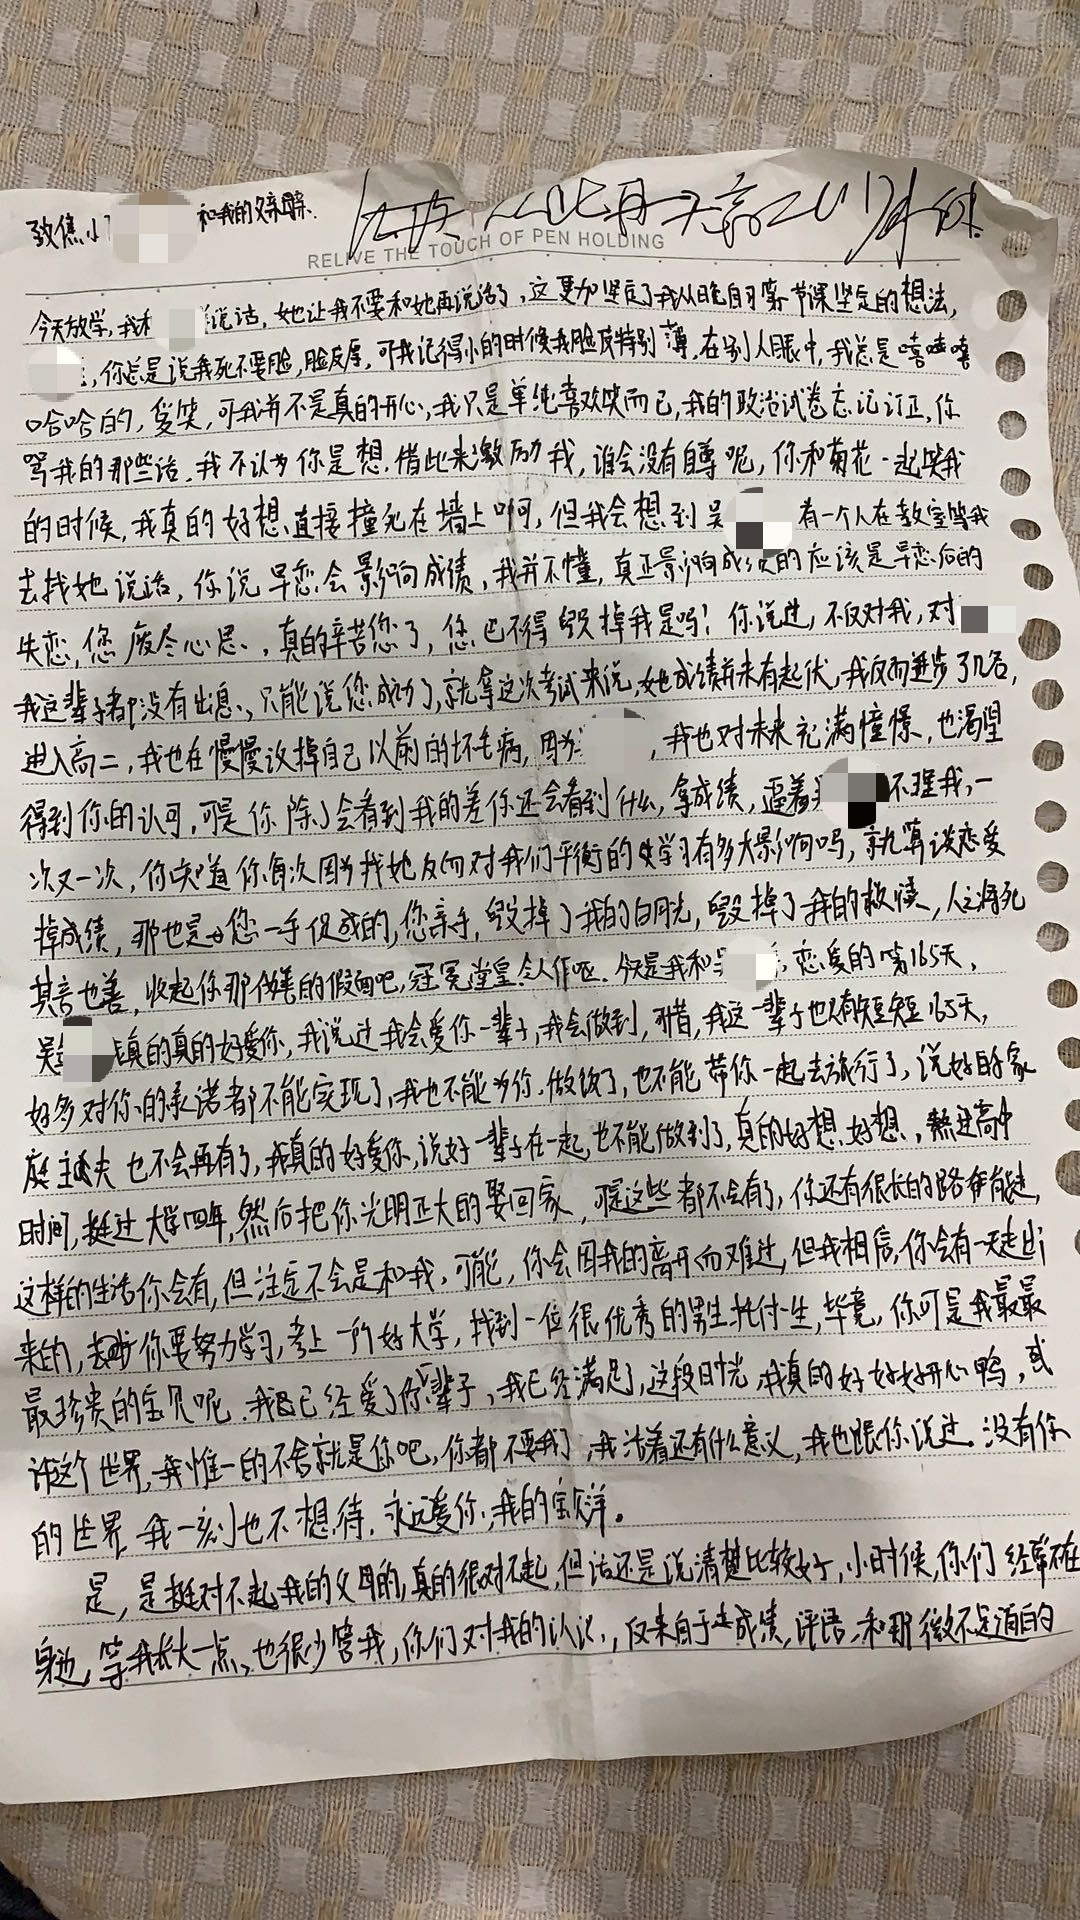 致焦小 和我的父亲母亲.
RELIVE THE TOUCH OF PEN HOLDING
今天放学,我和 说话,她让我不要和她再说话了,这更加坚定了我从晚自习第一节课坚定的想法,
,你总是说我死不要脸,脸皮厚,可我记得小的时候我脸皮特别薄,在别人眼中,我总是嘻嘻嘻
哈哈的,爱笑,可我并不是真的开心,我只是单纯喜欢笑而已,我的政治试卷忘记订正,你
骂我的那些话,我不认为你是想借此来激励我,谁会没有自尊呢,你和菊花一起笑我
的时候,我真的好想直接撞死在墙上啊,但我会想到吴 有一个人在教室等我
去找她说话,你说早恋会影响成绩,我并不懂,真正影响成绩的应该是早恋后的
失恋,您废尽心思,真的辛苦您了,您巴不得毁掉我是吗!你说过,不仅对我,对
我这辈子都没有出息,只能说您成功了,就拿这次考试来说,她成绩并未有起伏,我反而进步了几名,
进入高二,我也在慢慢改掉自己以前的坏毛病,因为 ,我也对未来充满憧憬,也渴望
得到你的认可,可是你除了会看到我的差你还会看到什么,拿成绩,逼着 不理我,一
次又一次,你知道你每次因为找她反而对我们平衡的学习有多大影响吗,就算谈恋爱
掉成绩,那也是您一手促成的,您亲手,毁掉了我的白月光,毁掉了我的救赎,人之将死
其言也善,收起你那伪善的假面吧,冠冕堂皇,令人作呕.今天是我和吴 恋爱的第165天,
吴 我真的真的好爱你,我说过我会爱你一辈子,我会做到,可惜,我这一辈子也只有短短165天,
好多对你的承诺都不能实现了,我也不能为你做饭了,也不能带你一起去旅行了,说好的家
庭主夫也不会再有了,我真的好爱你,说好一辈子在一起,也不能做到了,真的好想好想,熬过高中
时间,挺过大学四年,然后把你光明正大的娶回家,可是这些都不会有了,你还有很长的路
这样的生活你会有,但注定不会是和我,可能,你会因我的离开而难过,但我相信,你会有一天走出
来的,你要努力学习,考上一所好大学,找到一位很优秀的男生托付一生,毕竟,你可是我最最
最珍贵的宝贝呢.我已经爱了你一辈子,我已经满足了,这段时光,我真的好好好开心鸭,或
许这个世界,我惟一的不舍就是你吧,你都不要我了,我活着还有什么意义,我也跟你说过.没有你
的世界,我一刻也不想待.永远爱你,我的宝 .
是,是挺对不起我的父母的,真的很对不起,但话还是说清楚比较好,小时候,你们经常不在
身边,等我长大一点,也很少管我,你们对我的认识,仅来自于成绩,评语,和那微不足道的